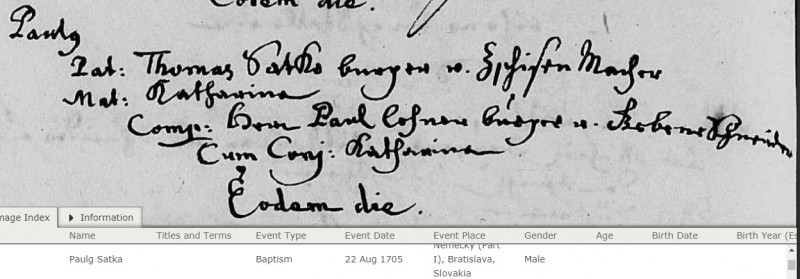 Eodem die.
Paulg
Pat: Thomas Satko burger v. Machr
Mat: Katharina
Comp: Herr Paul Lehner burger v.
Cum Conj: Katharina
Eodem die.
mage Index Information
Name Titles and Terms Event Type Event Date Event Place Gender Age Birth Date Birth Year (Es
Paulg Satka Baptism 22 Aug 1705 Nemecky (Part I), Bratislava, Slovakia Male